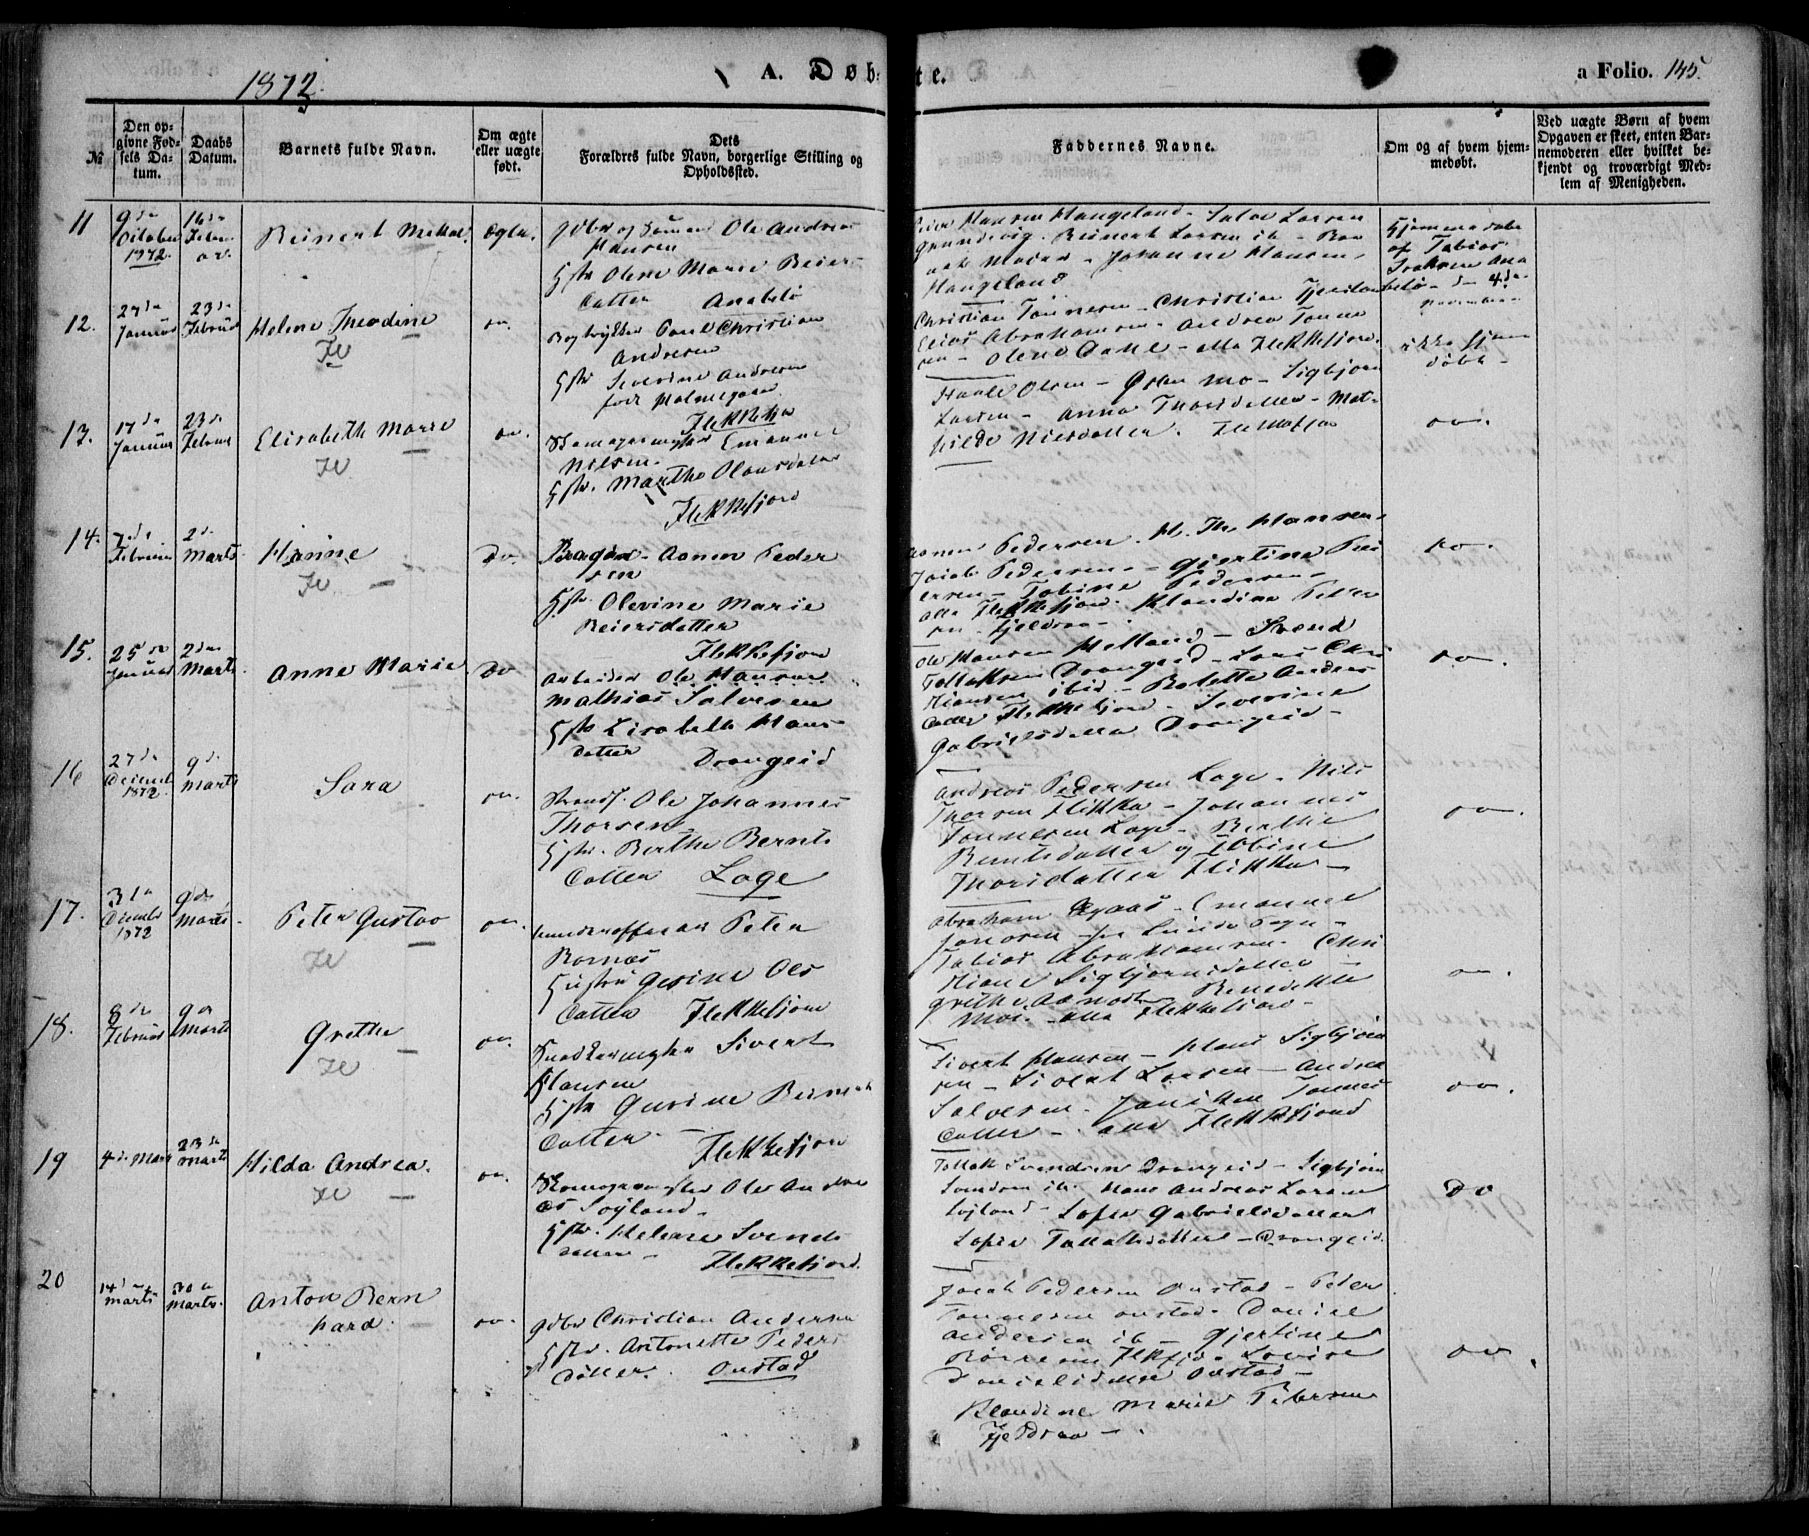 1872.
A. Døbte.
a Folio. 145.
№
Den opgivne Fødsels Datum.
Daabs Datum.
Barnets fulde Navn.
Om ægte eller uægte født.
Dets Forældres fulde Navn, borgerlige Stilling og Opholdssted.
Faddernes Navne.
Om og af hvem hjemmedøbt.
Ved uægte Børn af hvem Opgaven er skeet, enten Barnemoderen eller hvilket bekjendt og troværdigt Medlem af Menigheden.
11
9de October 1872.
16de Februar
Reinert
Ægte.
Ole Andreas
Hansen
Gstr Olene Marie Beiers
datter Anabelø
Peder Hansen Hangeland - Salve Larsen
Grundevig. Reinert Larsen ib -
Johanne Hansen
Hangeland
Hjemmedøbt
af Tobias
Isaksen Ana
beløe d 4de
November
12.
27de Januar
23de Februar
Helene Theodine
Fl
do.
Bogtrykker Poul Christian
Andresen
Gstr Severine Andresen
født Holmegaard
Flekkefjord
Christian Tønnesen - Christian Tjersland
Elias Abrahamsen - Andrea Tønne
sen - Olene Dahl - alle Flekkefjord.
ikke hjem
døbt -
13.
17de Januar
23de Februar
Elisabeth Marie
Fl
do.
Skomagermester Emanuel
Nilsen.
Gstr. Marthe Olausdatter
Flekkefjord
Olsen - Østen Mo - Sigbjørn
Larsen - Anna Thorsdatter - Mat-
hilde Nielsdatter.
do.
14.
7de Februar
2de Marts
Hanne
Fl
Do.
Aanen Peder
sen
Gstr. Olevine Marie
Beiersdatter
Flekkefjord
Aanen Pedersen. H. Th. Hansen.
Jacob Pedersen - Gjertine Ped
ersen - Tobine Pedersen -
alle Flekkefjord. Klandine Peder
sen. Fjeldsaa -
do.
15.
25de Januar
2den Marts
Anne Marie
Do
Arbeider Ole Hansen
Mathias Salvesen
Gstr Lisabeth Hans
datter Drangeid
Ole Hansen Helland - Svend
Tollaksen Drangeid - Lars Chri
stiansen ibid - Bolette Anders
datter Flekkefjord - Severine
Gabrielsdatter Drangeid -
do.
16
27de December 1872.
9de Marts
Sara
do.
Strands. Ole Johannes
Thorsen
Gstr. Berthe Bernts
datter Loge
Andreas Pedersen Loge. Nils
Thorsen Flikka - Johannes
Tønnesen Loge - Berthe
Berntsdatter og Tobine
Thorsdatter Flikka -
do.
17.
31te December 1872
9de Marts
Peter Gustav
Fl
do.
Underofficer Peter
Bornæs
Hustru Gesine Ols
datter Flekkefjord
Abraham - Emanuel
Jonasen fr Lunde Sogn -
Tobias Abrahamsen. Chri
stiane Sigbjørnsdatter -
Grethe Aanodt Benedikte
Moi. alle Flekkefjord -
do.
18.
8de Februar
9de Marts
Grethe
Fl
do.
Snedkermester Sivert
Hansen
Gstr Gurine Bernt
datter. - Flekkefjord
Sivert Hansen - Hans Sigbjørn
sen - Sivert Larsen - Andrea
Salvesen. Tønnes
datter - alle Flekkefjord
do.
19
4de Marts
23de Marts
Hilda Andrea.
Fl
do.
Skomagermester Ole Andrea
as Søyland.
Gstr. Helene Svends
datter - Flekkefjord.
Tollak Svendsen Drangeid - Sigbjørn
Svendsen ib. Hans Andreas Larsen
Søyland - Sofie Gabrielsdatter
Sofie Tollaksdatter - Drangeid.
Do
20
14de Marts
30te Marts.
Anton Bern
hard.
do.
Gdbr Christian Andersen
Gstr. Antonette Peders
datter. Oustad
Jacob Pedersen Oustad - Peder
Tønnesen Oustad - Daniel
Andersen ib - Gjertine
Lovise
Danielsdatter Oustad -
Klandine Marie Pedersen
Fjeldsaa -
do.